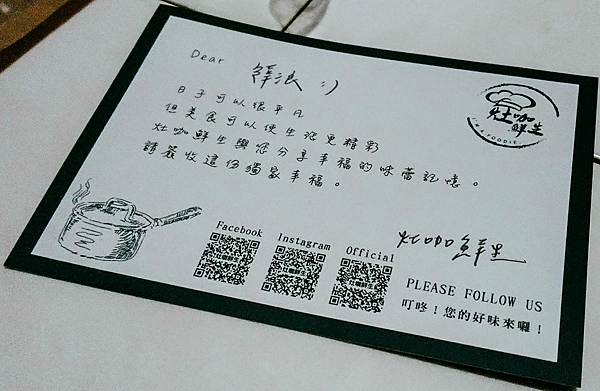 Dear 鋒浪 :)
灶咖鮮生
日子可以很平凡
但美食可以使生活更精彩
灶咖鮮生與您分享幸福的味蕾記憶。
請簽收這份獨家幸福。
灶咖鮮生
Facebook Instagram Official
PLEASE FOLLOW US
叮咚！您的好味來囉！